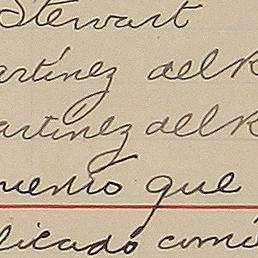 Stewart
artínez del R
artinez del R
uenio que
licado comú